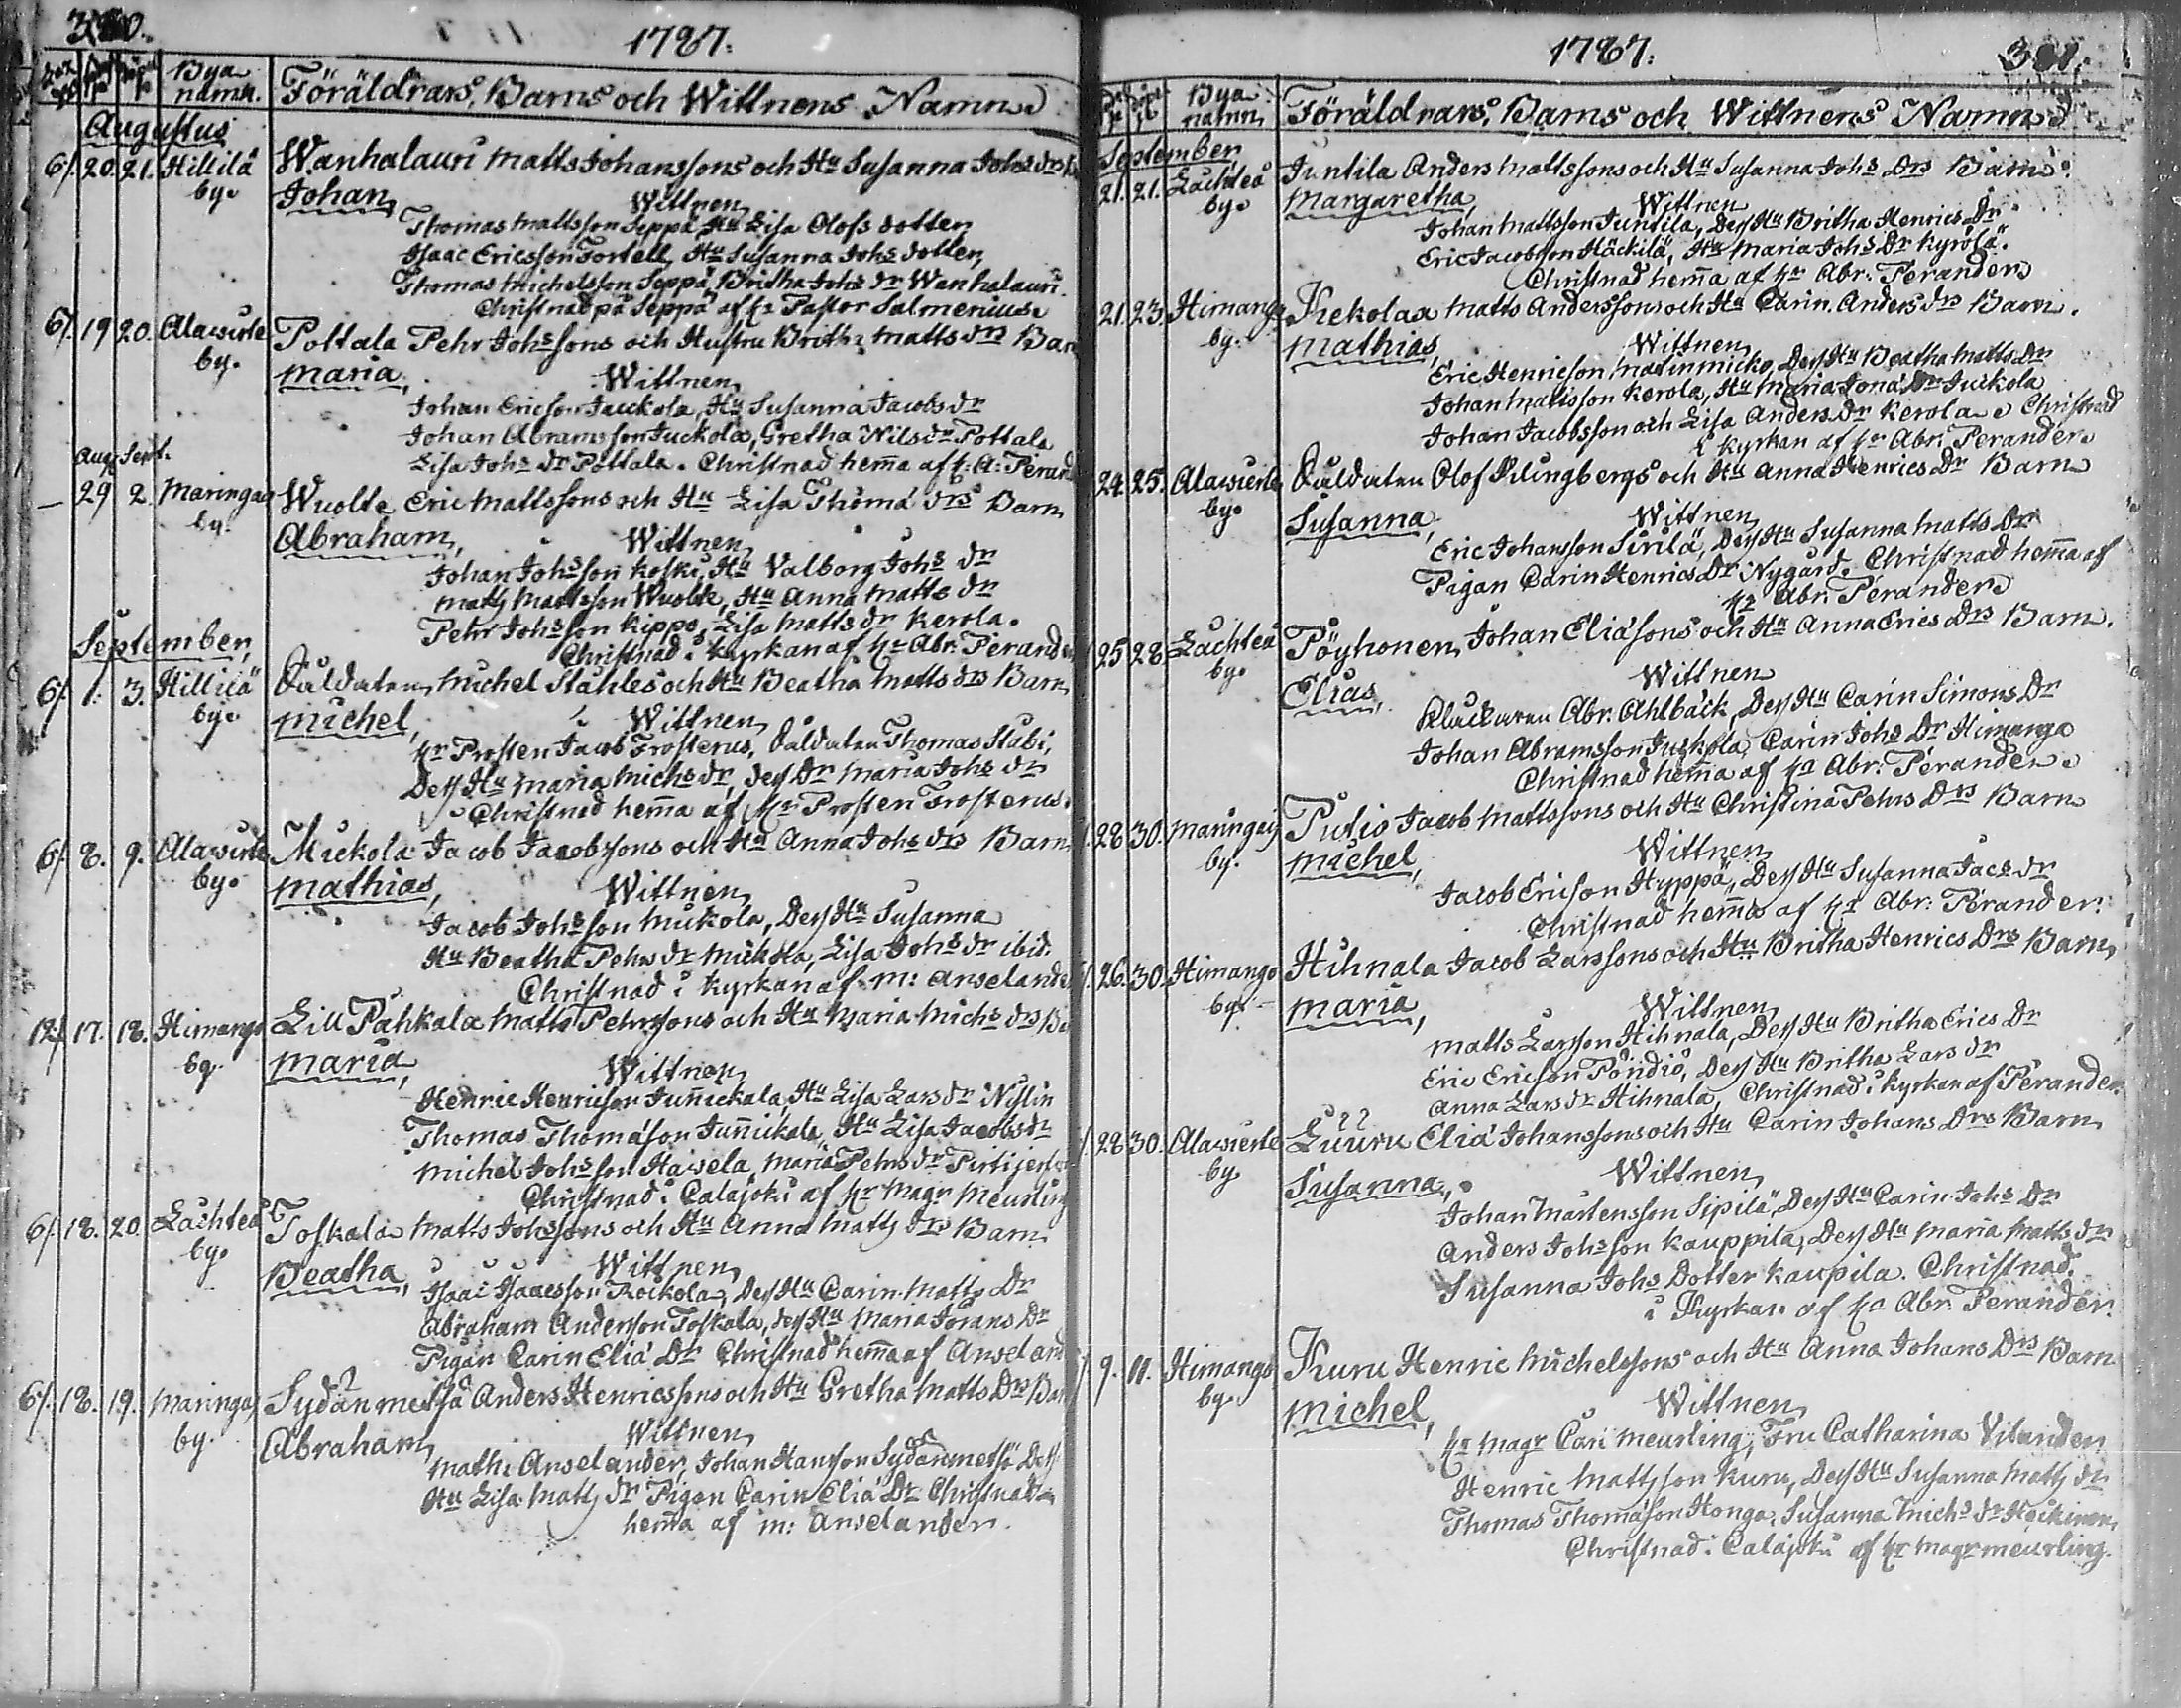 1787.
Bya namn. Föräldrars, Barns och Wittnens Namn
Augustus
6/. 20. 21. Hillilä by. Wanhalauri Matts Johanssons och Hu Susanna Johs drs
Johan, Wittnen
Thomas Mattsson Seppä, Hu Lisa Olofs dotter
Isaac Ericsson Tortell, Hu Susanna Johs dotter,
Thomas Michelsson Seppä, Britha Johs dr Wanhalauri.
Christnad på Seppä af Hr Pastor Salmenius
6/. 19 20. Alawirte by. Pottala Pehr Johssons och Hustru Britha Matts drs Barn
Maria, Wittnen
Johan Ericson Juckola, Hu Susanna Jacobs dr
Johan Abramsson Juckola, Gretha Nils dr Pottala
Lisa Johs dr Pottala. Christnad hemma af H: A: Perand
Aug. Sept.
29 2. Maringais by. Wuolte Eric Mattssons och Hu Lisa Thoma drs Barn
Abraham, Wittnen
Johan Johsson Koski, Hu Valborg Johs dr
Matts Mattsson Wuolte, Hu Anna Matts dr
Pehr Johsson Kippo, Lisa Matts dr Kerola.
Christnad i kyrkan af Hr Abr. Perander
September,
6/. 1. 3. Hillilä by. Saldaten Michel Ståhles och Hu Beatha Matts drs Barn
Michel, Wittnen
Hr Prosten Jacob Frosterus, Saldaten Thomas Stabi,
Dess Hu Maria Michs dr, dess Dr Maria Johs dr
Christnad hemma af Hr Prosten Frosterus.
6/. 8. 9. Alawirte by. Muckola Jacob Jacobssons och Hu Anna Johs drs Barn
Mathias, Wittnen
Jacob Johsson Muckola, Dess Hu Susanna
Hu Beatha Pehrs dr Muckola, Lisa Johs dr ibid.
Christnad i kyrkan af M: Anselander
12/. 17. 18. Himango by. Lill Pahkala Matts Pehrssons och Hu Maria Michs drs
Maria, Wittnen
Henric Henricson Junnickala, Hu Lisa Lars dr Nislin
Thomas Thomason Junnickala, Hu Lisa Jacobs dr
Michel Johsson Hawela, Maria Pehrs dr
Christnad i Calajoki af Hr Magr Meurling
6/. 18. 20. Lachteå by. Toskala Matts Johssons och Hu Anna Matts drs Barn
Beatha, Wittnen
Isaac Isaacsson Rockola, Dess Hu Carin Matts Dr
Abraham Anderson Toskala, dess Hu Maria Jörans Dr
Pigan Carin Elia Dr Christnad hemma af Anseland
6/. 18. 19. Maringais by. Sydänmetsä Anders Henricssons och Hu Gretha Matts Drs Barn
Abraham, Wittnen
Math: Anselander, Johan Hansson Sydänmetsä Dess
Hu Lisa Matts dr Pigan Carin Elia Dr Christnad
hemma af M: Anselander.
1787. 381.
Bya namn, Föräldrars, Barns och Wittnens Namn
September
21. 21. Lachteå by. Juntila Anders Mattssons och Hu Susanna Johs Drs Barn.
Margaretha, Wittnen
Johan Mattsson Juntila, Dess Hu Britha Henrics Dr
Eric Jacobsson Häckilä, Hu Maria Johs Dr Kyrölä.
Christnad hemma af Hr Abr: Perander
21. 23. Himango by. Kekolax Matts Anderssons och Hu Carin Anders drs Barn.
Mathias, Wittnen
Eric Henricson Matinmicko, Dess Hu Beatha Matts Dr
Johan Mattsson Kerola, Hu Maria Jona Dr Juckola
Johan Jacobsson och Lisa Anders Dr Kerola. Christnad
i kyrkan af Hr Abr: Perander
24. 25. Alawirte by. Saldaten Olof Klingbergs och Hu Anna Henrics Dr Barn
Susanna, Wittnen
Eric Johansson Sirilä, Dess Hu Susanna Matts Dr
Pigan Carin Henrics Dr Nygård. Christnad hemma af
Hr Abr: Perander
25 28 Lachteå by. Pöyhonen Johan Eliasons och Hu Anna Erics Drs Barn.
Elias, Wittnen
Kluckaren Abr. Ahlbäck, Dess Hu Carin Simons Dr
Johan Abramsson Juckola, Carin Johs Dr Himango
Christnad hemma af Hr Abr: Perander
28 30. Maringais by. Putio Jacob Mattssons och Hu Christina Pehrs Drs Barn
Michel, Wittnen
Jacob Ericson Hyppä, Dess Hu Susanna Jacs dr
Christnad hemma af Hr Abr: Perander.
26. 30. Himango by. Hihnala Jacob Larssons och Hu Britha Henrics Drs Barn,
Maria, Wittnen
Matts Larsson Hihnala, Dess Hu Britha Erics Dr
Eric Ericson Pöndiö, Dess Hu Britha Lars dr
Anna Lars dr Hihnala, Christnad i kyrkan af Perander.
28 30. Alawirte by Luuru Elia Johanssons och Hu Carin Johans Drs Barn
Susanna, Wittnen
Johan Mårtensson Sipilä, Dess Hu Carin Johs Dr
Anders Johsson Kauppila, Dess Hu Maria Matts dr
Susanna Johs Dotter Kaupila. Christnad
i Kyrkan af Hr Abr. Perander.
9. 11. Himango by. Kuru Henric Michelssons och Hu Anna Johans Drs Barn
Michel, Wittnen
Hr Magr Carl Meurling, Fru Catharina Vilander
Henric Mattsson Kuru, Dess Hu Susanna Matts dr
Thomas Thomason Honga, Susanna Michs dr Häckinen,
Christnad i Calajoki af Hr Magr Meurling.